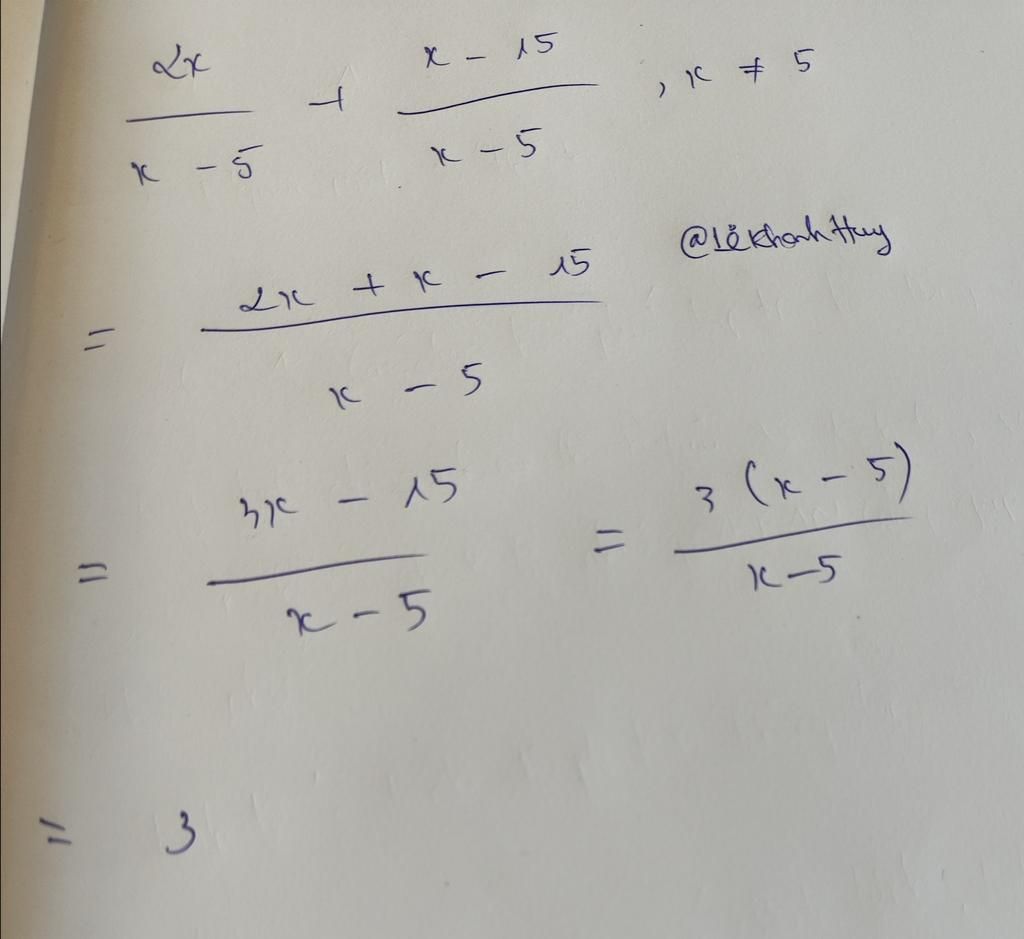 2x / x - 5 + x - 15 / x - 5 , x ≠ 5
@LêKhanhHuy
= 2x + x - 15 / x - 5
= 3x - 15 / x - 5 = 3 (x - 5) / x - 5
= 3